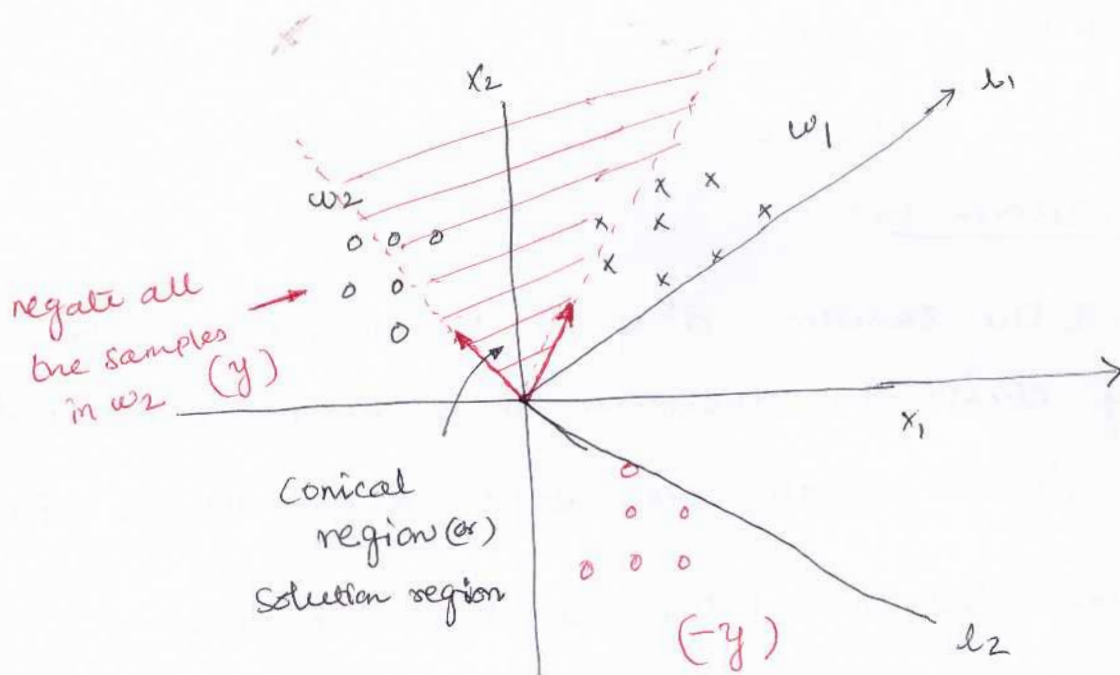 x2
l1
ω1
ω2
negate all
the samples
in ω2 (y)
x1
Conical
region (or)
Solution region
(-y)
l2